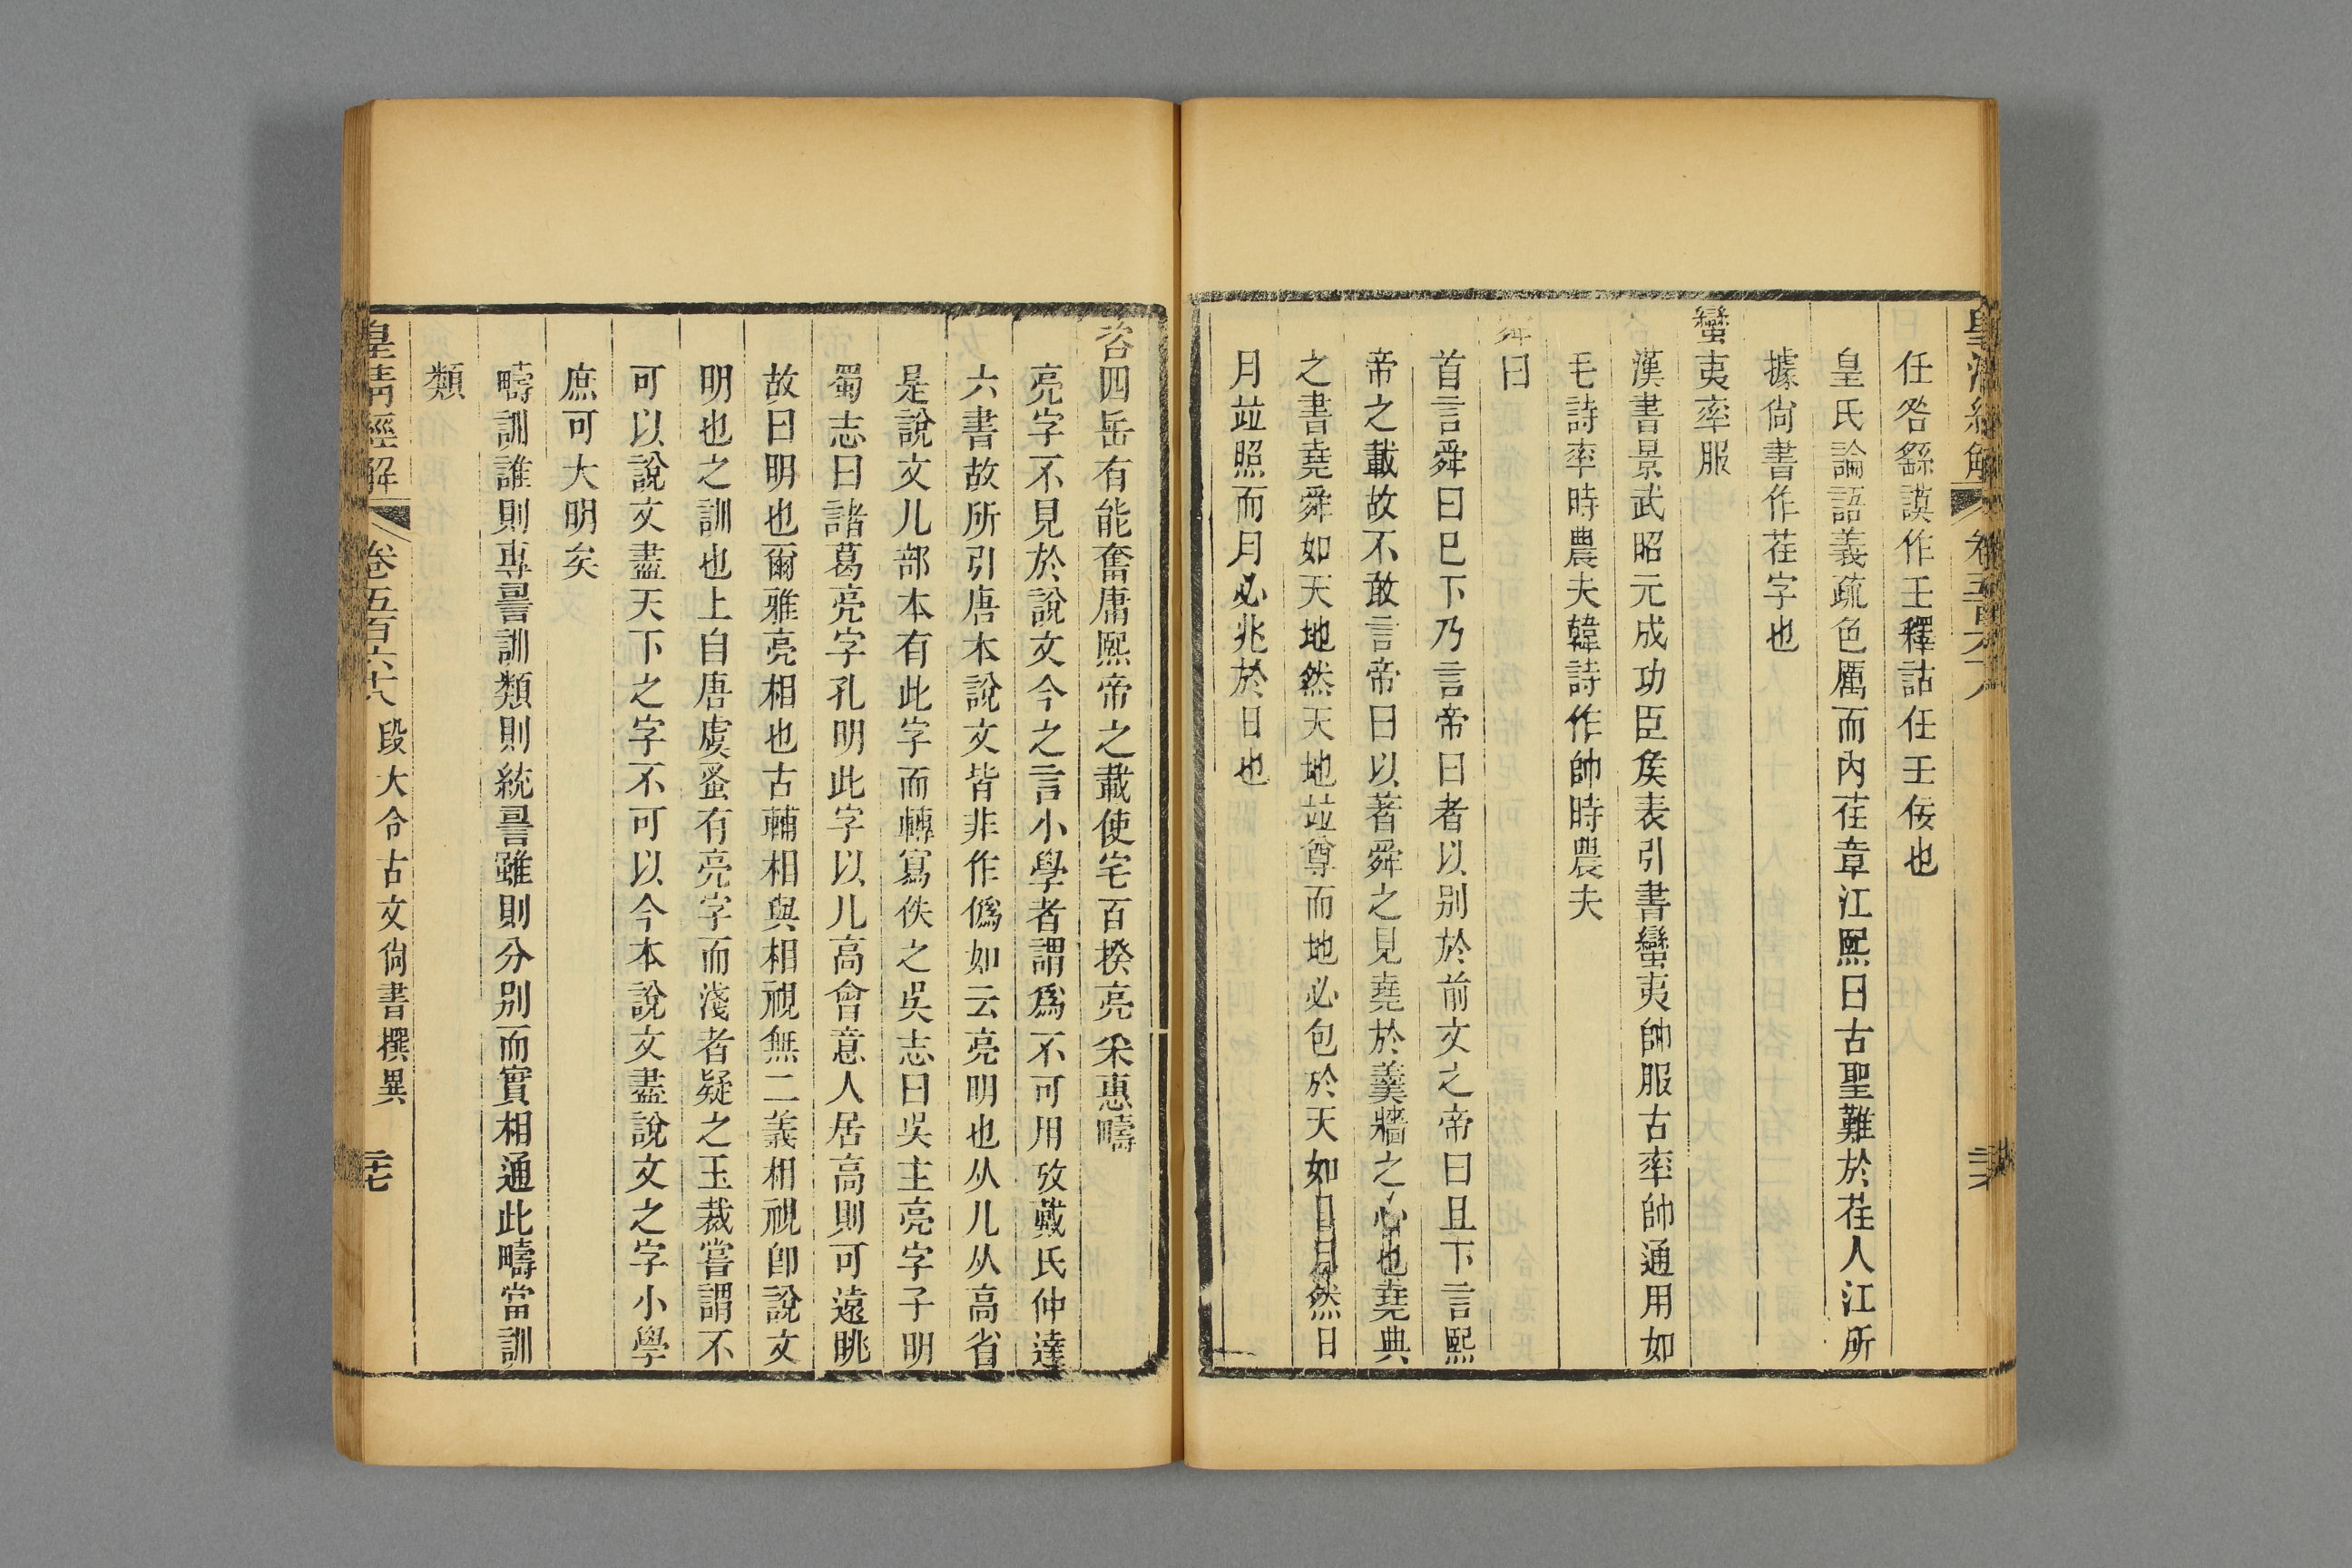 任咎繇謨作壬釋詁任壬佞也
皇氏論語義疏色厲而內荏章江熙曰古聖難於荏人江所
據尙書作荏字也
蠻夷率服
漢書景武昭元成功臣矦表引書蠻夷帥服古率帥通用如
毛詩率時農夫韓詩作帥時農夫
舜曰
首言舜曰巳下乃言帝曰者以别於前文之帝曰且下言熙
帝之載故不敢言帝曰以著舜之見堯於羹牆之心也堯典
之書堯舜如天地然天地竝尊而地必包於天如日月然日
月竝照而月必兆於日也
咨四岳有能奮庸熙帝之載使宅百揆亮采惠疇
亮字不見於說文今之言小學者謂爲不可用攷戴氏仲達
六書故所引唐本說文皆非作僞如云亮明也从儿从高省
是說文儿部本有此字而轉寫佚之吳志曰吳主亮字子明
蜀志曰諸葛亮字孔明此字以儿高會意人居高則可遠眺
故曰明也爾雅亮相也古輔相與相視無二義相視卽說文
明也之訓也上自唐虞蚤有亮字而淺者疑之玉裁嘗謂不
可以說文盡天下之字不可以今本說文盡說文之字小學
庶可大明矣
疇訓誰則專𠷎訓類則統𠷎雖則分别而實相通此疇當訓
類
皇淸經解 卷五百六十八 段大令古文尙書撰異 二十七